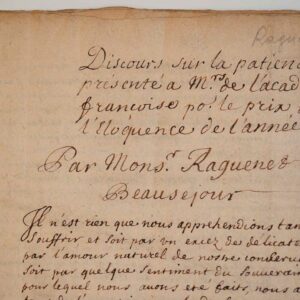 Ragu
Discours sur la patien
présenté a M.rs de l'acad
francoise po.r le prix
l'Eloquence de l'année
Par Mons.r Raguenet
Beausejour
Il n'est rien que nous apprehendions tan
souffrir et soit par un excez de delicat
par l'amour naturel de nostre conserv
soit par quelque sentiment du souverain
pour lequel nous avons eté faits, nous a